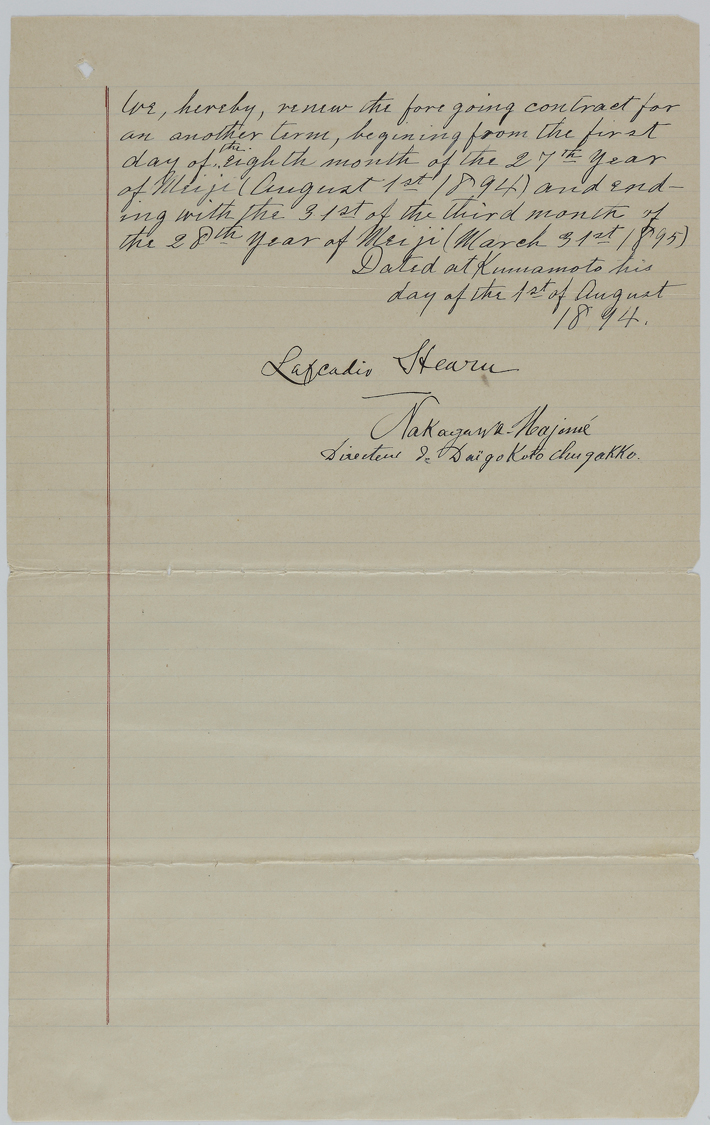 We, hereby, renew the fore going contract for
an another term, begining from the first
day of the eighth month of the 27th Year
of Meiji (August 1st 1894) and end-
ing with the 31st of the third month of
the 28th Year of Meiji (March 31st 1895)
Dated at Kumamoto his
day of the 1st of August
1894.
Lafcadio Hearn
Nakagawa Hajimé
Directeur de Daïgo Koto Chugakko.